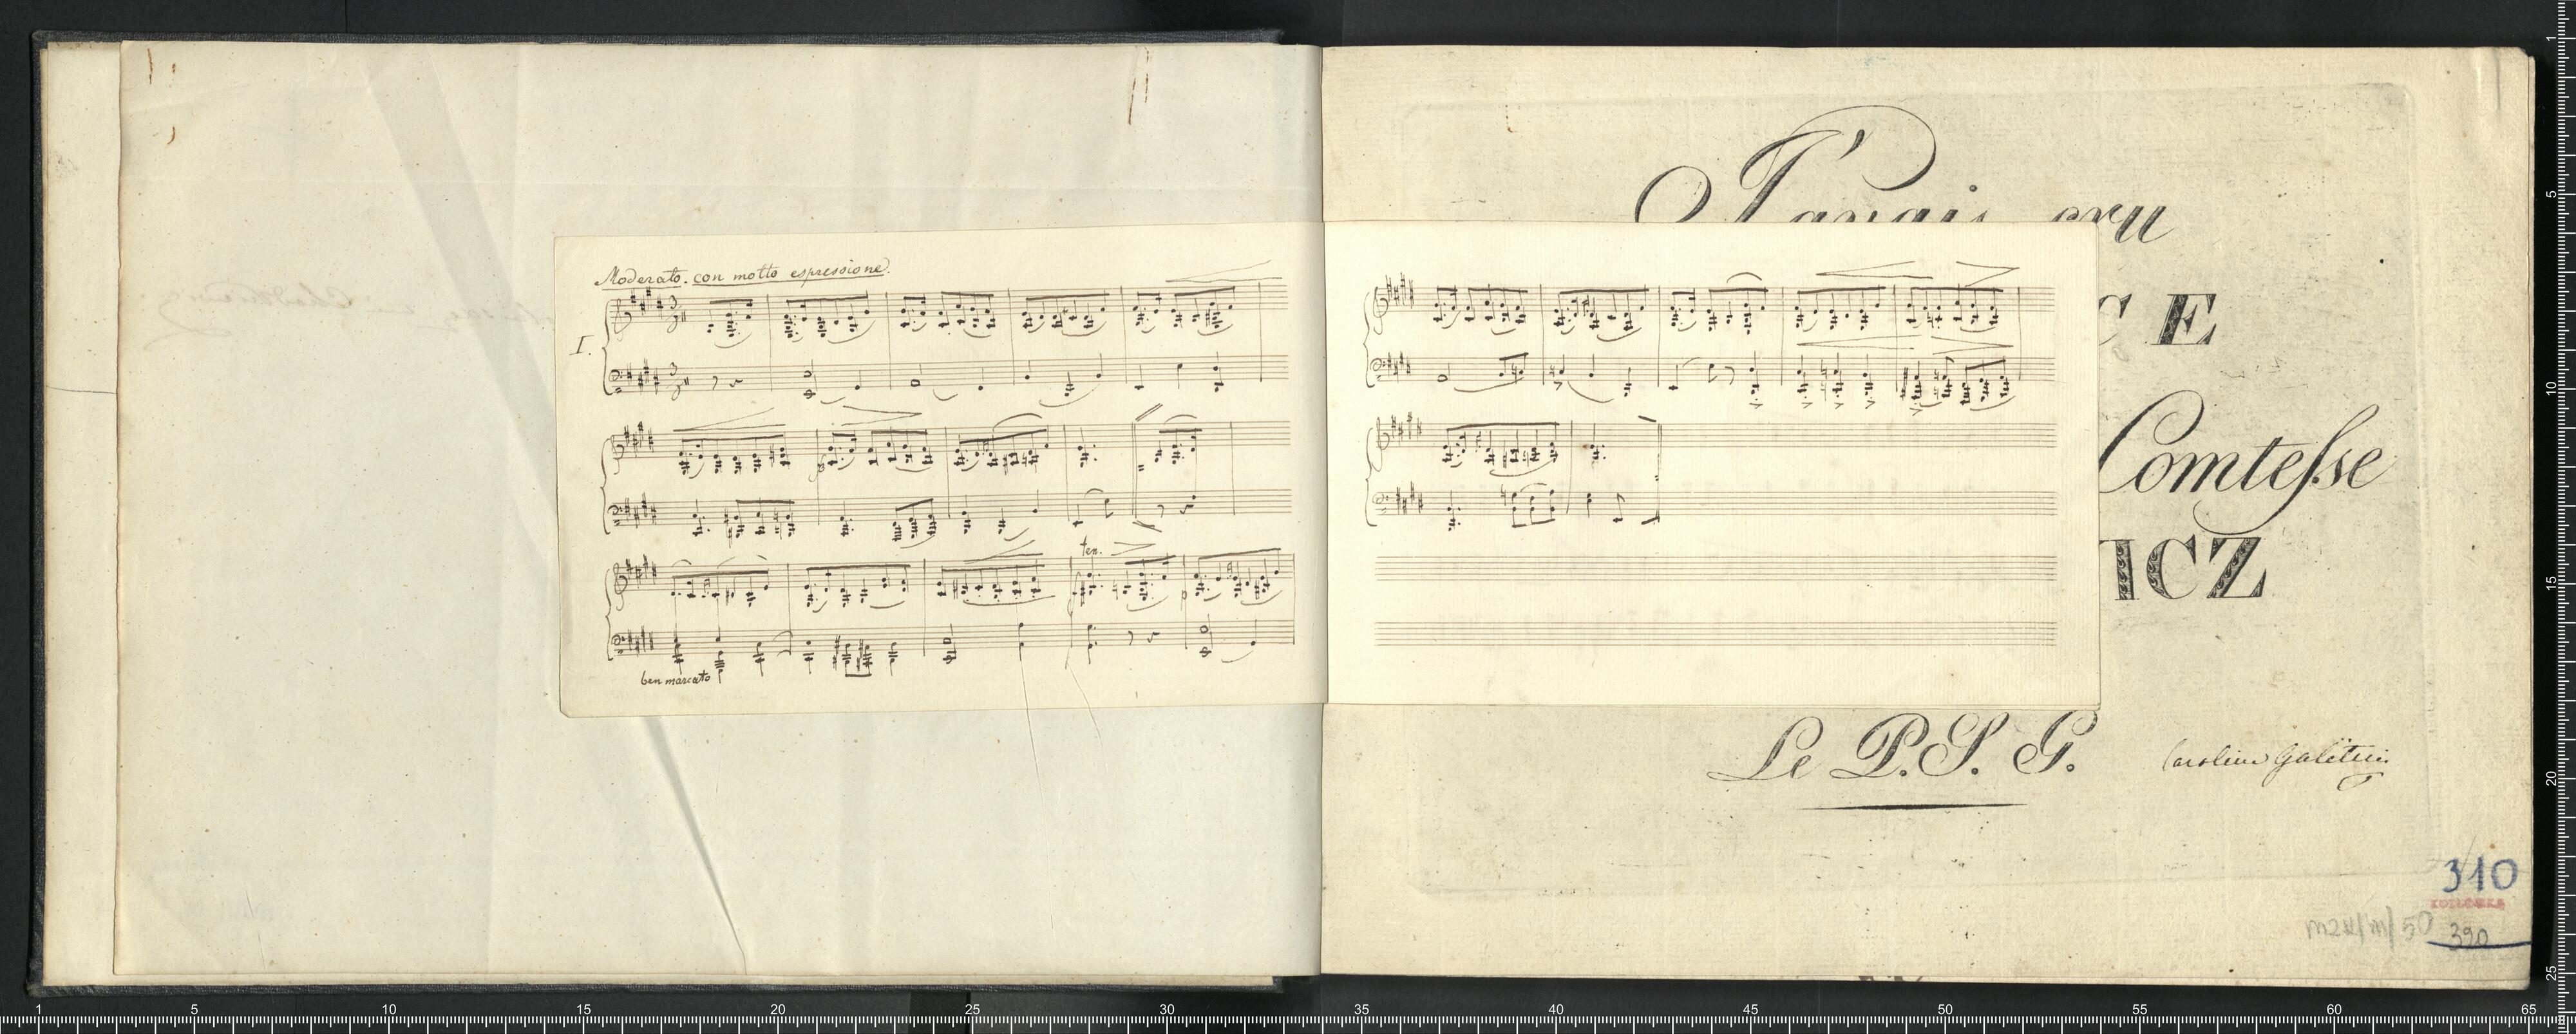 Moderato. con molto espressione.
I.
ten.
ben marcato
J'avais cru
CE
Comtesse
ICZ
Le P. S. G.
Caroline Galitzin
310
M24/III/50
390
1 5 10 15 20 25 30 35 40 45 50 55 60 65
1
5
10
15
20
25